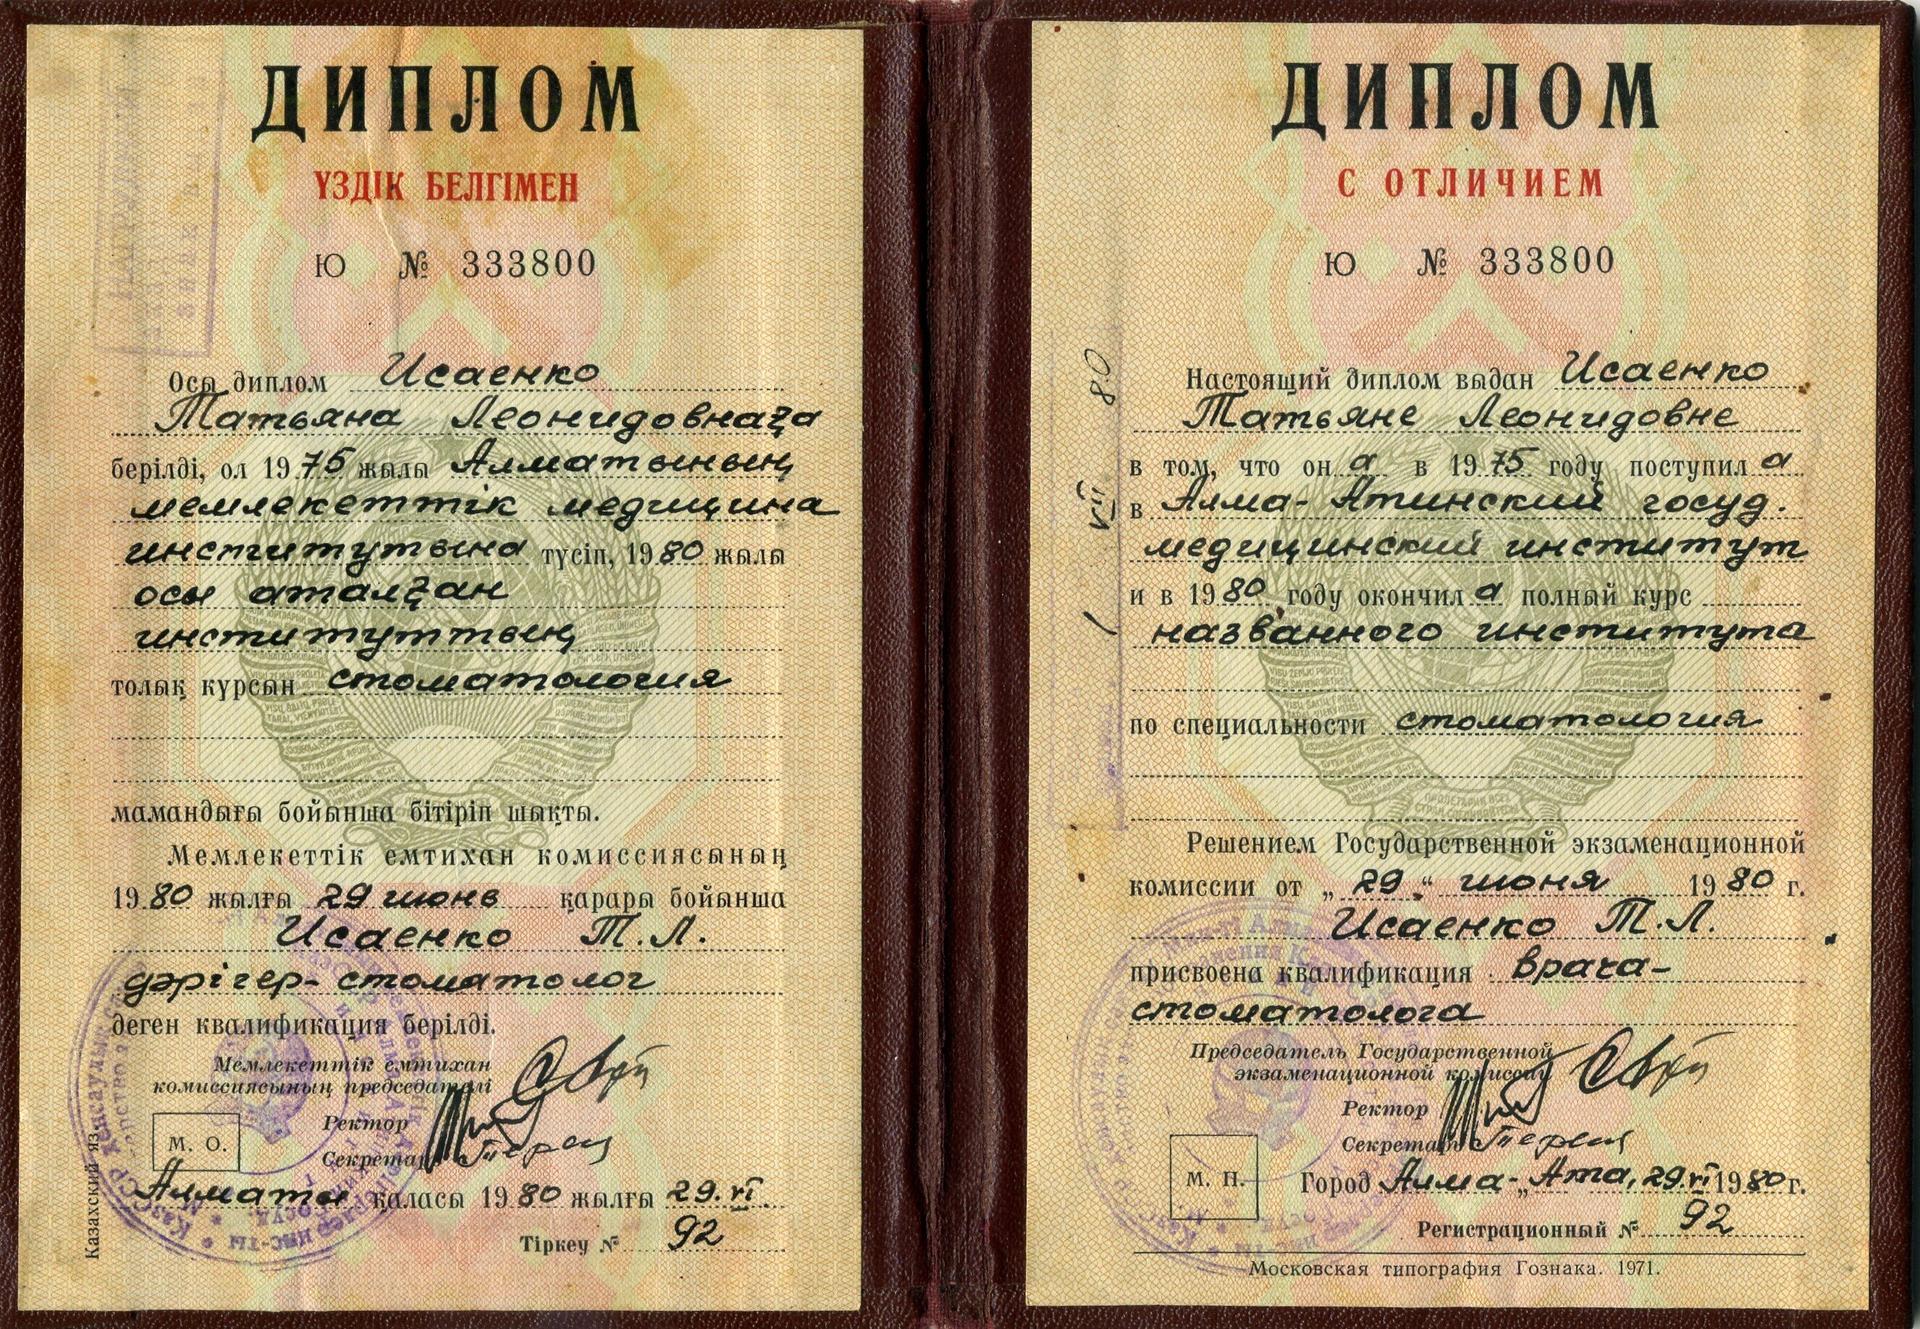 ДИПЛОМ
ҮЗДІК БЕЛГІМЕН
Ю № 333800
Осы диплом Исаенко
Татьяна Леонидовнаға
берілді, ол 1975 жылы Алматының
мемлекеттік медицина
институтына түсіп, 1980 жылы
осы аталған
институттың
толық курсын стоматология
мамандығы бойынша бітіріп шықты.
Мемлекеттік емтихан комиссиясының
1980 жылғы 29 июнь қарары бойынша
Исаенко Т.Л.
дәрігер-стоматолог
деген квалификация берілді.
Мемлекеттік емтихан
комиссиясының председателі
Ректор
Секретарь
М. О.
Алматы қаласы 1980 жылғы 29.VI.
Тіркеу № 92
Казахский яз.
ДИПЛОМ
С ОТЛИЧИЕМ
Ю № 333800
Настоящий диплом выдан Исаенко
Татьяне Леонидовне
в том, что она в 1975 году поступила
в Алма-Атинский госуд.
медицинский институт
и в 1980 году окончила полный курс
названного института
по специальности стоматология
Решением Государственной экзаменационной
комиссии от „29“ июня 1980 г.
Исаенко Т.Л.
присвоена квалификация врача-
стоматолога
Председатель Государственной
экзаменационной комиссии
Ректор
Секретарь
М. П.
Город Алма-Ата, 29.VI 1980 г.
Регистрационный № 92
Московская типография Гознака. 1971.
VII 80